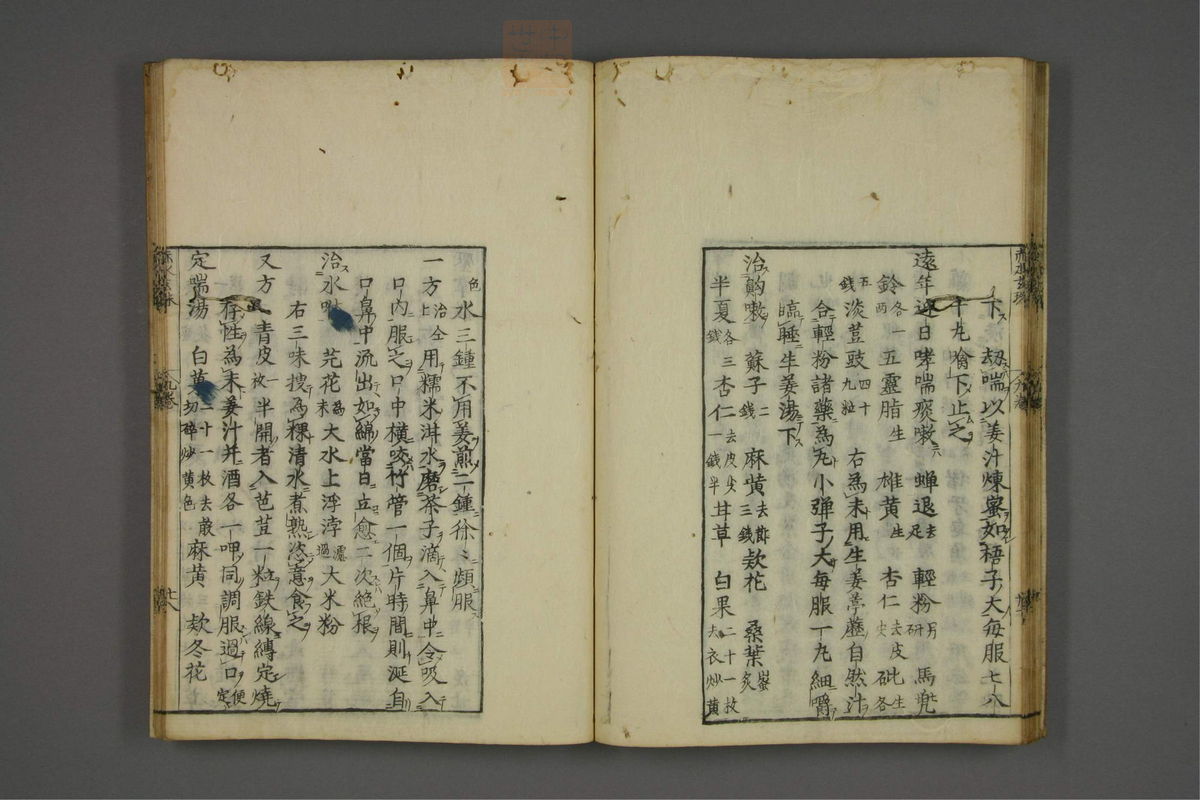 下劫喘以姜汁煉蜜如梧子大每服七八
十丸噙下止之
遠年近日哮喘痰嗽 蝉退去足 輕粉另研 馬兜
鈴各一兩 五靈脂生 雄黄生 杏仁去皮尖 砒生各
五錢 淡荳豉四十九粒 右為末用生姜葶藶自然汁
合輕粉諸藥為丸小弹子大每服一丸細嚼
臨睡生姜湯下
治齁嗽 蘇子二錢 麻黄去節三錢 欸花 桑葉蜜炙
半夏各三錢 杏仁去皮尖一錢半 甘草 白果二十一枚去衣炒黄
色水三鍾不用姜煎二鍾徐〻頻服
一方治仝上 用糯米泔水磨茶子滴入鼻中令吸入
口内服之口中横咬竹管一個片時間則涎自
口鼻中流出如綿當日立愈二次絶根
治水 芫花為末 大水上浮浡濾過 大米粉
右三味搜為粿清水煮熟恣意食之
又方 青皮一枚 半開者入芭荳一粒鉄線縛定燒
存性為末姜汁并酒各一呷同調服過口便定
定喘湯 白 二十一枚去殼切碎炒黄色 麻黄 欸冬花